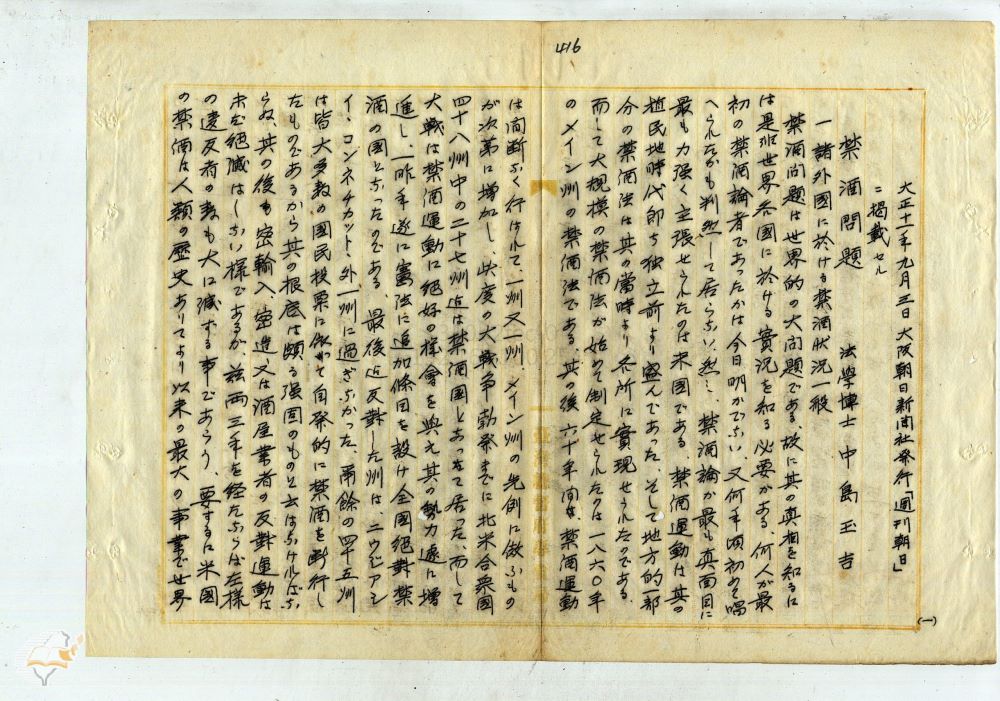 416
大正十一年九月三日大阪朝日新聞社発行「週刊朝日」
ニ掲載セル
禁酒問題　法學博士 中島玉吉
一 諸外國に於ける禁酒狀況一般
禁酒問題は世界的の大問題である、故に其の真相を知るに
は是非世界各国に於ける實況を知る必要がある何人が最
初の禁酒論者であったかは今日明かでない又何年頃初めて唱
へられたかも判然して居らない、然し、禁酒論が最も真面目に
最も力強く主張せられたのは米國である 禁酒運動は其の
植民地時代即ち独立前より盛んであった、そして地方的一部
分の禁酒法は其の當時より各所に實現せられたのである、
而して大規模の禁酒法が始めて制定せられたのは一八六〇年
のメイン州の禁酒法である、其の後六十年間は、禁酒運動
は間断なく行はれて、一州又一州、メイン州の先例に倣ふもの
が次第に増加し、此度の大戦争勃発までに北米合衆國
四十八州中の二十七州迄は禁酒國となって居った、而して
大戦は禁酒運動に絶好の機會を與え其の勢力遽に増
進し、一昨年遂に憲法に追加條目を設け全國絶對禁
酒の国となったのである、最後迄反對した州は、ニウジアシ
イ・コンネチカット・外一州に過ぎなかった、爾餘の四十五州
は皆大多数の國民投票に依って自発的に禁酒を断行し
たものであるから其の根底は頗る强固のものと云はなければな
らぬ、其の後も密輸入、密造又は酒屋業者の反對運動は
未だ絶滅はしない様であるが、茲両三年を経たならば左様
の違反者の数も大に減ずる事であらう、要するに米國
の禁酒は人類の歴史ありてより以来の最大の事業で世界
(一)